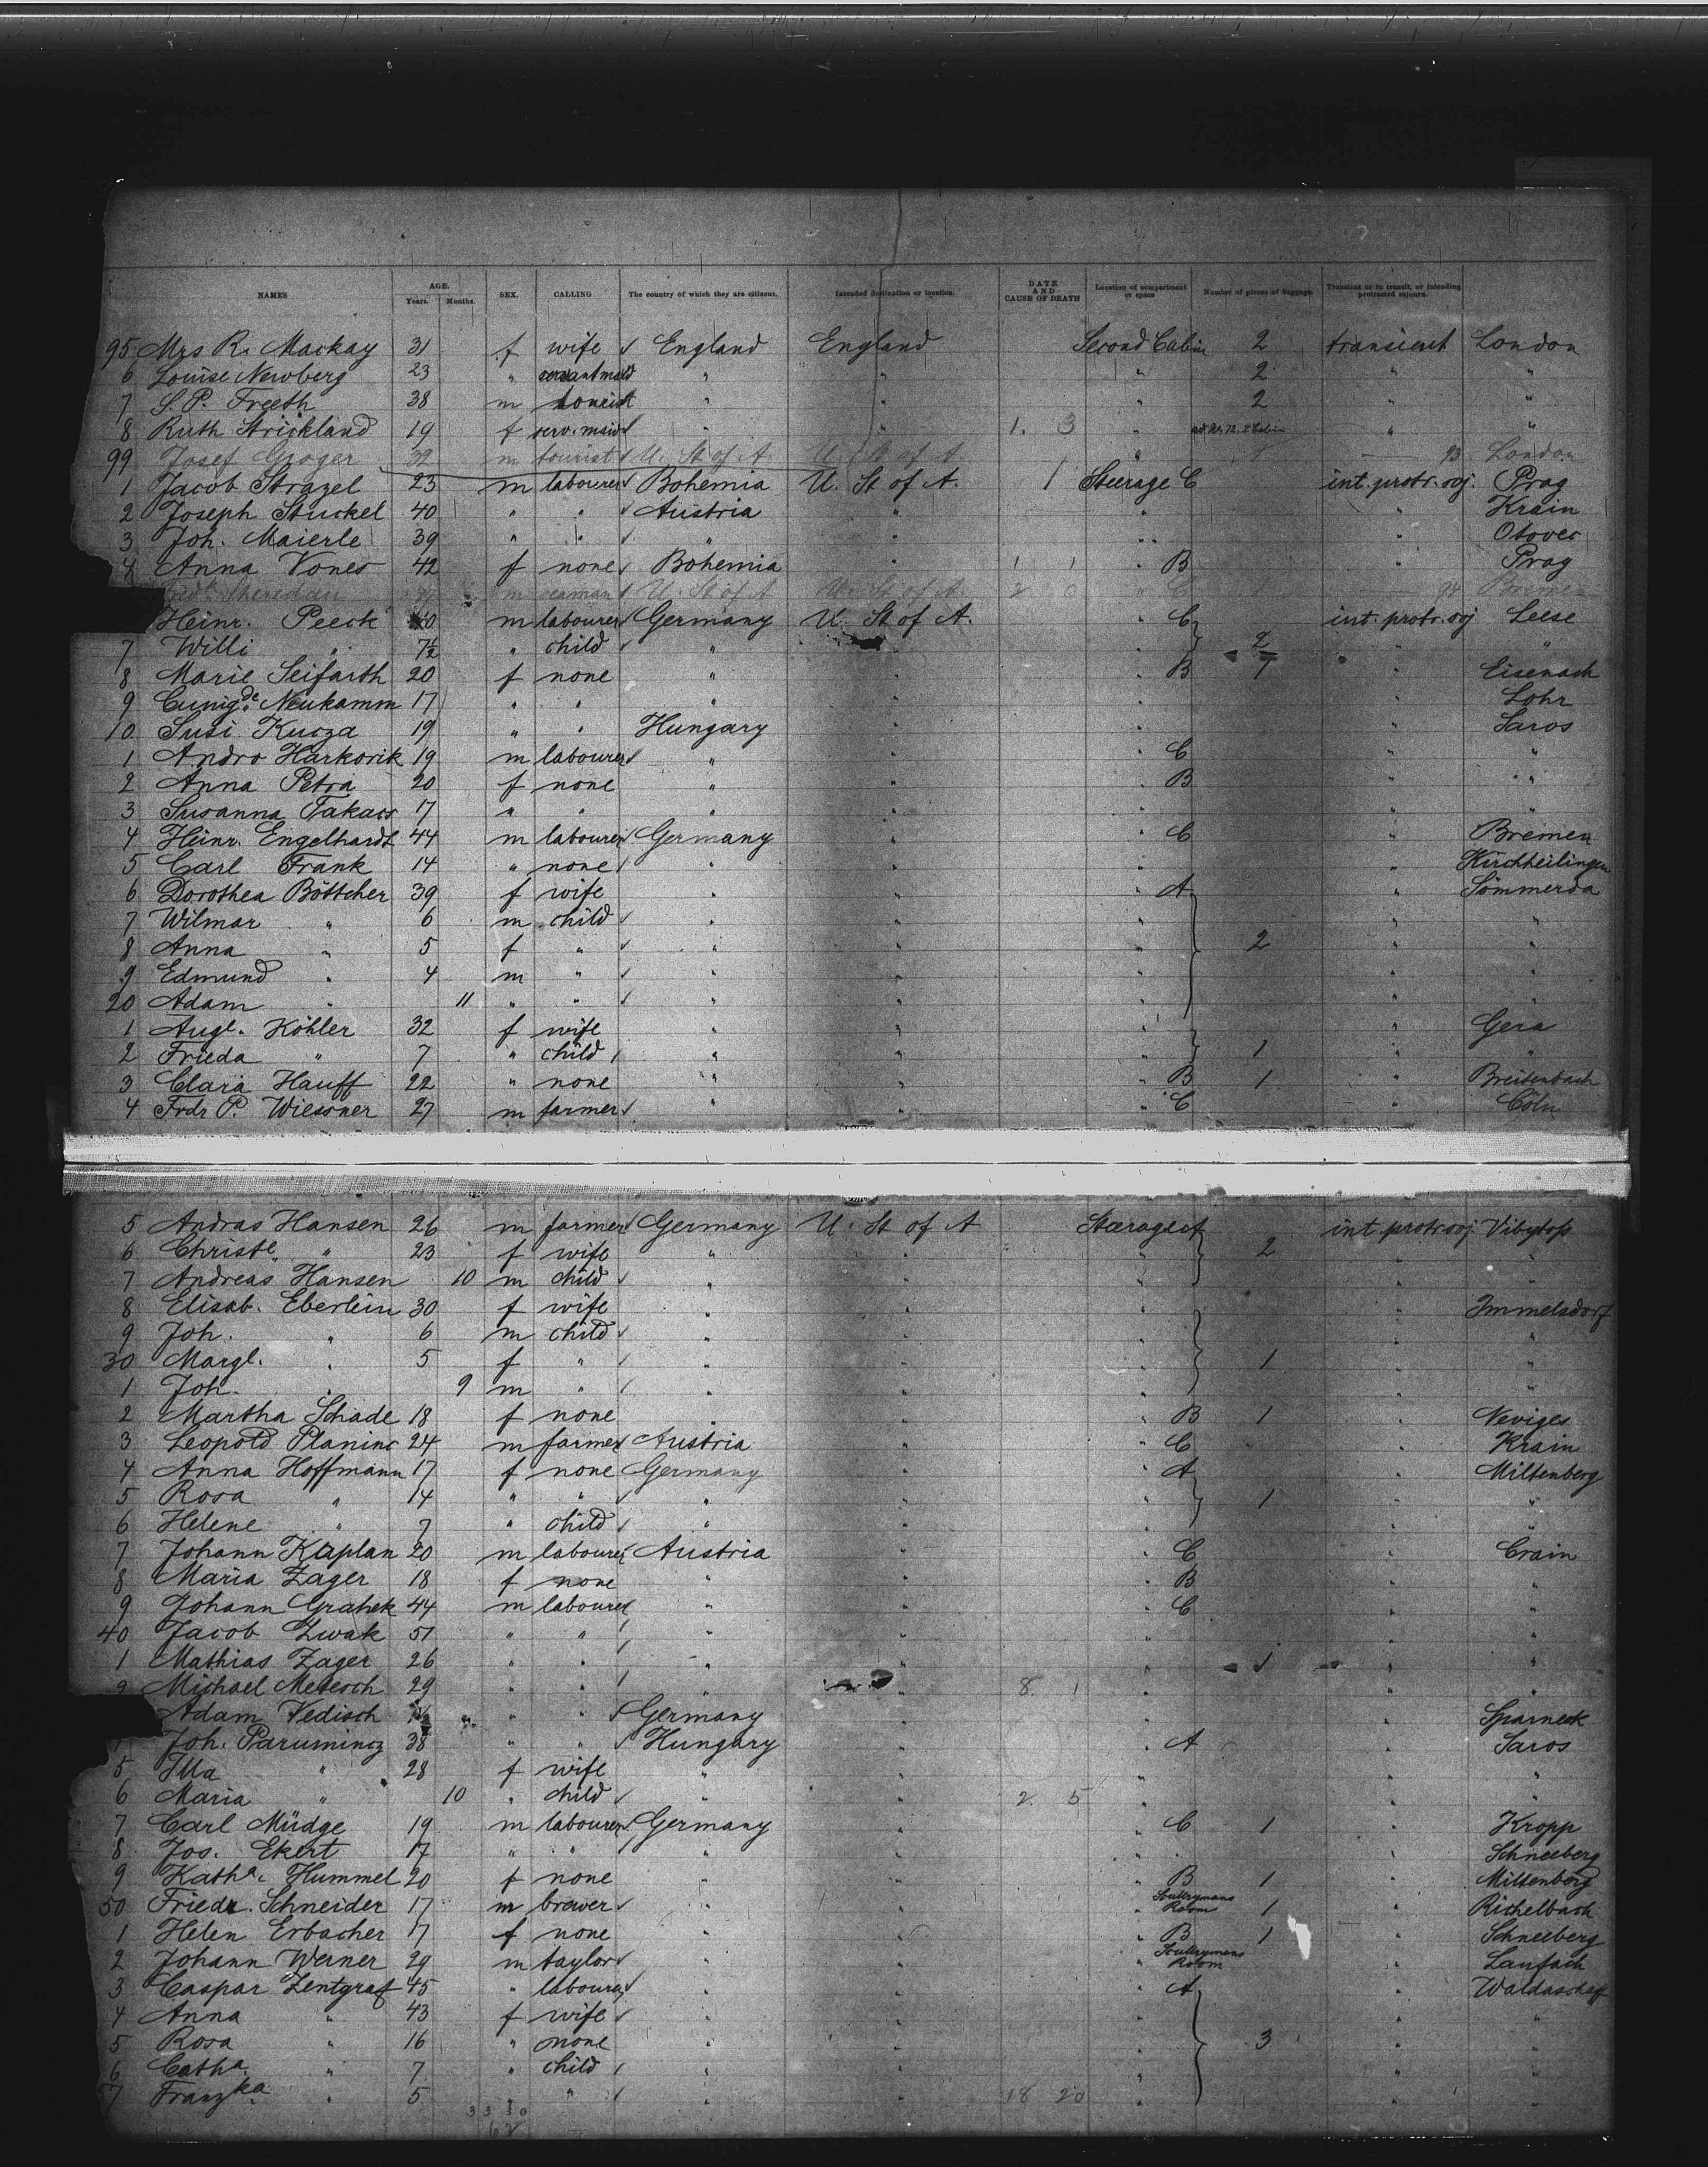 NAMES AGE. Years. Months. SEX. CALLING The country of which they are citizens. Intended destination or location. DATE AND CAUSE OF DEATH Location of compartment or space Number of pieces of baggage Transient or in transit, or intending protracted sojourn.
95 Mrs R. Mackay 31 f wife England England Second Cabin 2 transient London
6 Louise Newberg 23 " servantmaid " " " 2 " "
7 S. P. Freeth 38 m " " 2 "
8 Ruth Strickland 19 f serv. maid " " 1. 3 " " "
99 Josef Groger m tourist U. St of A U. St of A " 1 93 London
1 Jacob Strazel 23 m labourer Bohemia U. St of A. 1 Steerage C int. protr. soj. Prag
2 Joseph Stuckel 40 " " Austria " " " Krain
3 Joh. Maierle 39 " " " " " " Otovec
4 Anna Vones 42 f none Bohemia " 1 1 " B " Prag
Sheredan m seaman U. St of A U. St of A 2 0 " C 94 Bremen
Heinr. Peeck 40 m labourer Germany U. St of A. " C int. protr. soj Leese
7 Willi " 7½ " child " " " 2 " "
8 Marie Seifarth 20 f none " " " B 1 " Eisenach
9 Cunigde. Neukamm 17 " " " " " " Lohr
10 Susi Kucza 19 " " Hungary " " " Saros
1 Andro Harkorik 19 m labourer " " " C " "
2 Anna Petra 20 f none " " " B " "
3 Susanna Takacs 17 " " " " " " "
4 Heinr. Engelhardt 44 m labourer Germany " " C " Bremen
5 Carl Frank 14 " none " " " " Kirchheilingen
6 Dorothea Böttcher 39 f wife " " " A " Sömmerda
7 Wilmar " 6 m child " " " " "
8 Anna " 5 f " " " " 2 " "
9 Edmund " 4 m " " " " " "
20 Adam " 11 " " " " " " "
1 Augl. Köhler 32 f wife " " " " Gera
2 Frieda " 7 " child " " " 1 " "
3 Clara Hauff 22 " none " " " B 1 " Breitenbach
4 Frdr P. Wiessner 27 m farmer " " " C " Cöln
5 Andras Hansen 26 m farmer Germany U. St of A Steerage A int protr soj
6 Christe. " 23 f wife " " " 2 " "
7 Andreas Hansen 10 m child " " " " "
8 Elisab. Eberlein 30 f wife " " " " Immelsdorf
9 Joh. " 6 m child " " " " "
30 Margl. " 5 f " " " " 1 " "
1 Joh. " 9 m " " " " " "
2 Martha Schade 18 f none " " " B 1 " Neviges
3 Leopold Planinc 24 m farmer Austria " " C " Krain
4 Anna Hoffmann 17 f none Germany " " A " Miltenberg
5 Rosa " 14 " " " " " 1 " "
6 Helene " 7 " child " " " " "
7 Johann Kaplan 20 m labourer Austria " " C " Crain
8 Maria Zager 18 f none " " " B " "
9 Johann Grahek 44 m labourer " " " C " "
40 Jacob Zwak 51 " " " " " " "
1 Mathias Zager 26 " " " " " 1 " "
2 Michael 29 " " " " 8. 1 " " "
Adam Vedisch " " Germany " " " Sparneck
Joh. Parumincz 38 " " Hungary " " A " Saros
5 Illa " 28 f wife " " " " "
6 Maria " 10 " child " " 2. 5 " " "
7 Carl Müdge 19 m labourer Germany " " C 1 " Kropp
8 Jos. Ekert 17 " " " " " " Schneeberg
9 Katha. Hummel 20 f none " " " B 1 " Miltenberg
50 Friedr. Schneider 17 m brewer " " " Scullrymans Room 1 " Richelbach
1 Helen Erbacher 17 f none " " " B 1 " Schneeberg
2 Johann Werner 29 m taylor " " " Scullrymens Room " Laufach
3 Caspar Zentgraf 45 " labourer " " " A " Waldaschaff
4 Anna " 43 f wife " " " " "
5 Rosa " 16 " none " " " 3 " "
6 Catha. " 7 " child " " " " "
7 Franzka. " 5 " " " " 18 20 " " "
3 3 30
62